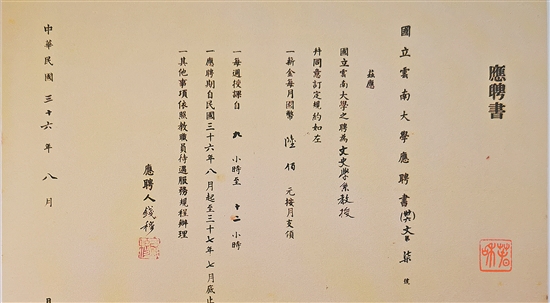 應聘書
國立雲南大學應聘書漢文字第 號
茲應
國立雲南大學之聘為文史學系教授
並同意訂定規約如左
一薪金每月國幣 陸佰 元按月支領
一每週授課自 九 小時至 十二 小時
一應聘期自民國三十六年八月起至三十七年七月底止
一其他事項依照教職員待遇服務規程辦理
應聘人 錢穆
中華民國 三十六 年 八 月 日